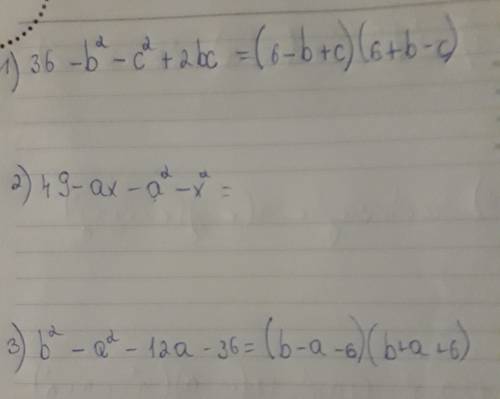 1) 36 - b² - c² + 2bc = (6-b+c)(6+b-c)
2) 49 - ax - a² - x² =
3) b² - a² - 12a - 36 = (b-a-6)(b+a+6)